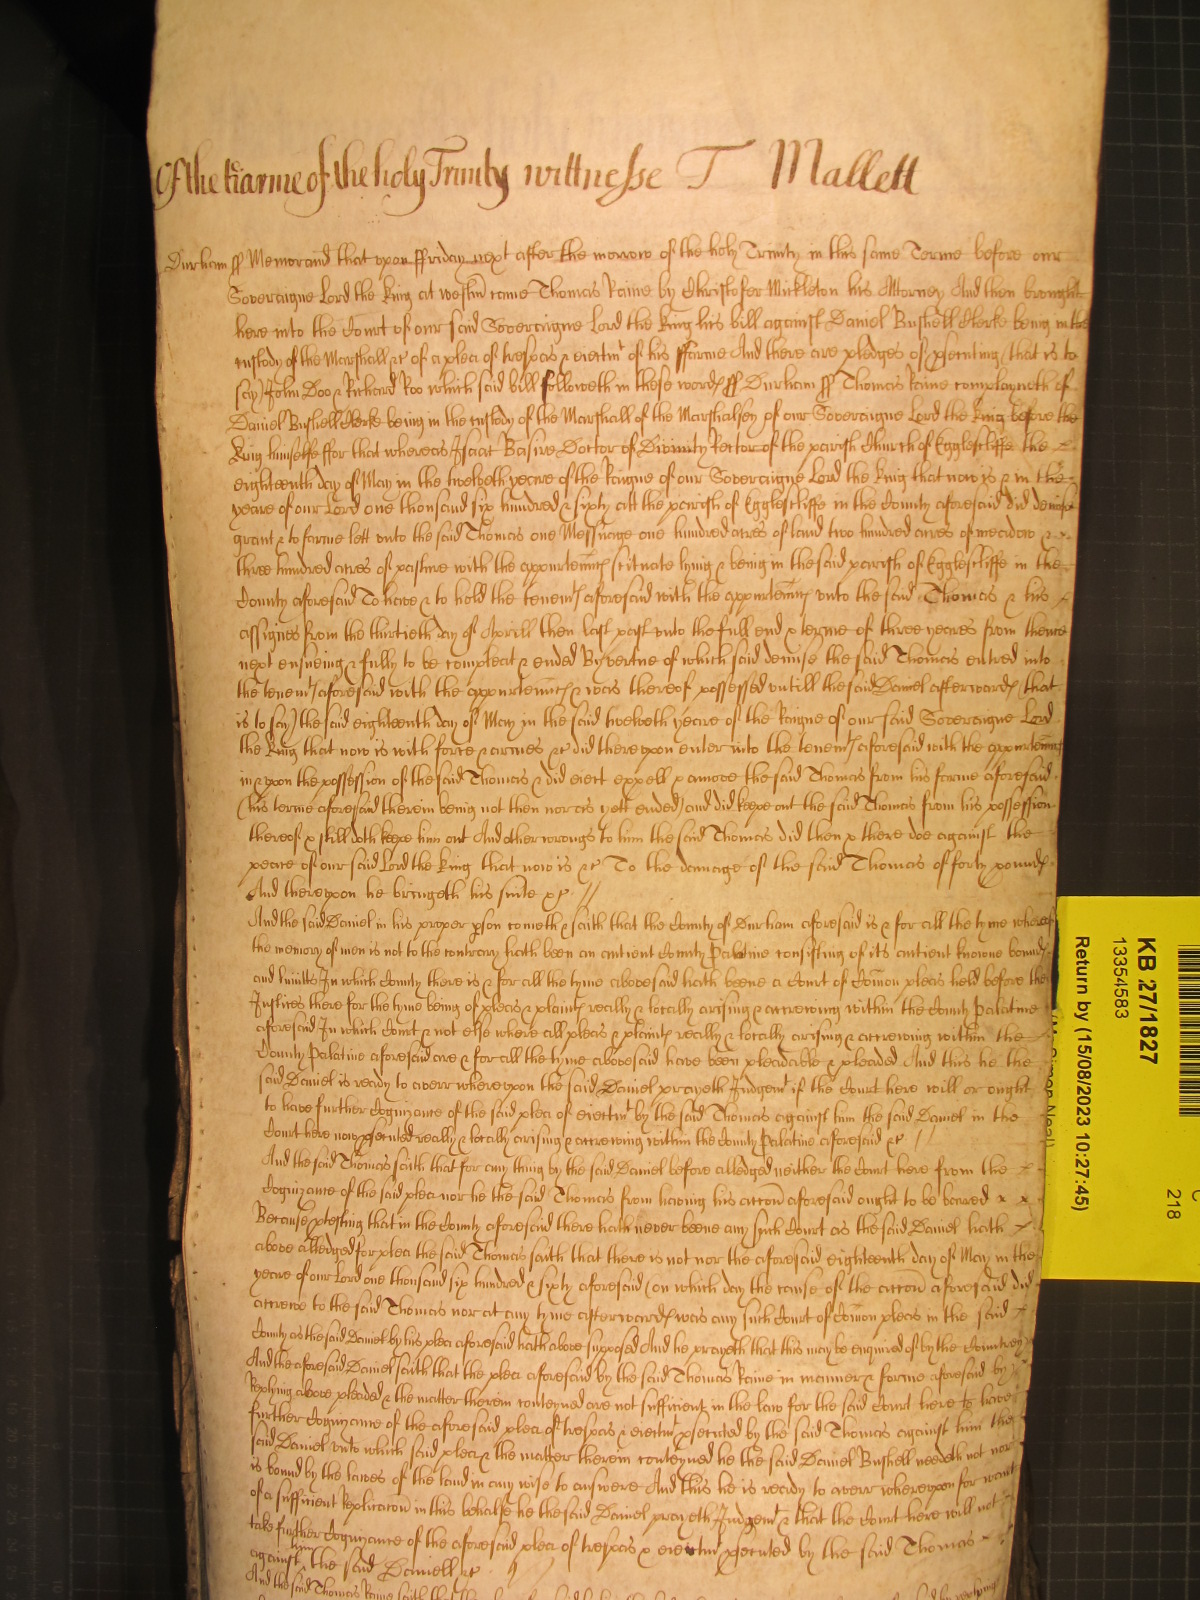 Of the tearme of the holy Trinity wittnesse T Mallett
Durham ss Memorand that upon ffriday next after the morrow of the holy Trinity in this same Terme before our
Soveraigne Lord the King at Westm̄ came Thomas Raine by Christofer Mickleton his Attorney And then brought
here into the Court of our said Soveraigne Lord the King his bill against Daniel Bushell Clerke being in the
custody of the Marshall &c of a plea of trespas & eiectmt of his fferme And there are pledges of psecuting (that is to
say) John Doo & Richard Roo which said bill followeth in these words ss Durham ss Thomas Raine complayneth of
Daniel Bushell Clerke being in the custody of the Marshall of the Marshalsey of our Soveraigne Lord the King before the
King himselfe ffor that whereas Isaac Basire Doctor of Divinity Rector of the parish Church of Egglescliffe the
eighteenth day of May in the twelveth yeare of the Raigne of our Soveraigne Lord the King that now is & in the
yeare of our Lord one thousand six hundred & sixty att the parish of Egglescliffe in the County aforesaid did demise
grant & to farme lett unto the said Thomas one Messuage one hundred acres of land two hundred acres of meadow &
three hundred acres of pasture with the appurtennces scituate lying & being in the said parish of Egglescliffe in the
County aforesaid To have & to hold the tenemts aforesaid with the appurtennces unto the said Thomas & his
assignes from the thirtieth day of Aprill then last past unto the full end & terme of three yeares from thence
next ensueing & fully to be compleat & ended By vertue of which said demise the said Thomas entred into
the tenemts aforesaid with the appurtennces & was thereof possessed untill the said Daniel afterwards (that
is to say) the said eighteenth day of May in the said twelveth yeare of the Raigne of our said Soveraigne Lord
the King that now is with force & armes &c did thereupon enter into the tenemts aforesaid with the appurtennces
in & upon the possession of the said Thomas & did eiect expell & amove the said Thomas from his farme aforesaid
(his terme aforesaid therein being not then nor as yett ended) and did keepe out the said Thomas from his possession
thereof & still doth keepe him out And other wrongs to him the said Thomas did then & there doe against the
peace of our said Lord the King that now is &c To the damage of the said Thomas of forty pounds
And thereupon he bringeth his suite &c
And the said Daniel in his proper pson cometh & saith that the County of Durham aforesaid is & for all the tyme whereof
the memory of men is not to the contrary hath been an antient County Palatine consisting of its antient knowne bounds
and limitts In which County there is & for all the tyme abovesaid hath beene a Court of Com̄on pleas held before the
Justices there for the tyme being of pleas & plaints really & locally arising & accrewing within the County Palatine
aforesaid In which Court & not else where all pleas & plaints really & locally arising & accrewing within the
County Palatine aforesaid are & for all the tyme abovesaid have been pleadable & pleaded And this he the
said Daniel is ready to averr whereupon the said Daniel prayeth Judgemt if the Court here will or ought
to have further Cognizance of the said plea of eiectmt by the said Thomas against him the said Daniel in the
Court here now psecuted really & locally arising & accrewing within the County Palatine aforesaid &c
And the said Thomas saith that for any thing by the said Daniel before alledged neither the Court here from the
Cognizance of the said plea nor he the said Thomas from having his accon̄ aforesaid ought to be barred
Because ptesting that in the County aforesaid there hath never beene any such Court as the said Daniel hath
above alledged for plea the said Thomas saith that there is not nor the aforesaid eighteenth day of May in the
yeare of our Lord one thousand six hundred & sixty aforesaid (on which day the cause of the accon̄ aforesaid did
accrewe to the said Thomas nor at any tyme afterwards was any such Court of Com̄on pleas in the said
County as the said Daniel by his plea aforesaid hath above supposed And he prayeth that this may be enquired of by the Countrey
And the aforesaid Daniel saith that the plea aforesaid by the said Thomas Raine in manner & forme aforesaid by
Replying above pleaded & the matter therein conteyned are not sufficient in the law for the said Court here to have
further Cognizance of the aforesaid plea of trespas & eiectmt psecuted by the said Thomas against him the
said Daniel unto which said plea & the matter therein conteyned he the said Daniel Bushell needeth not nor
is bound by the lawes of the land in any wise to answere And this he is ready to averr whereupon for want
of a sufficient Replicacon̄ in this behalfe he the said Daniel prayeth Judgemt & that the Court here will not
take further Cognizance of the aforesaid plea of trespas & eiectmt psecuted by the said Thomas
against him the said Daniell &c
And the said Thomas Raine saith that the
KB 27/1827
13354583
Return by (15/08/2023 10:27:45)
218